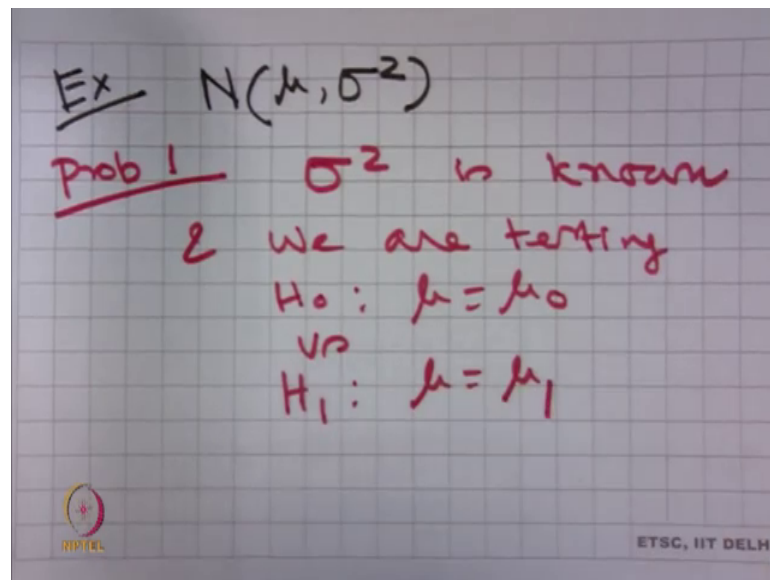 Ex N(μ, σ²)
Prob 1 σ² is known
& we are testing
H₀: μ = μ₀
vs
H₁: μ = μ₁
NPTEL
ETSC, IIT DELH